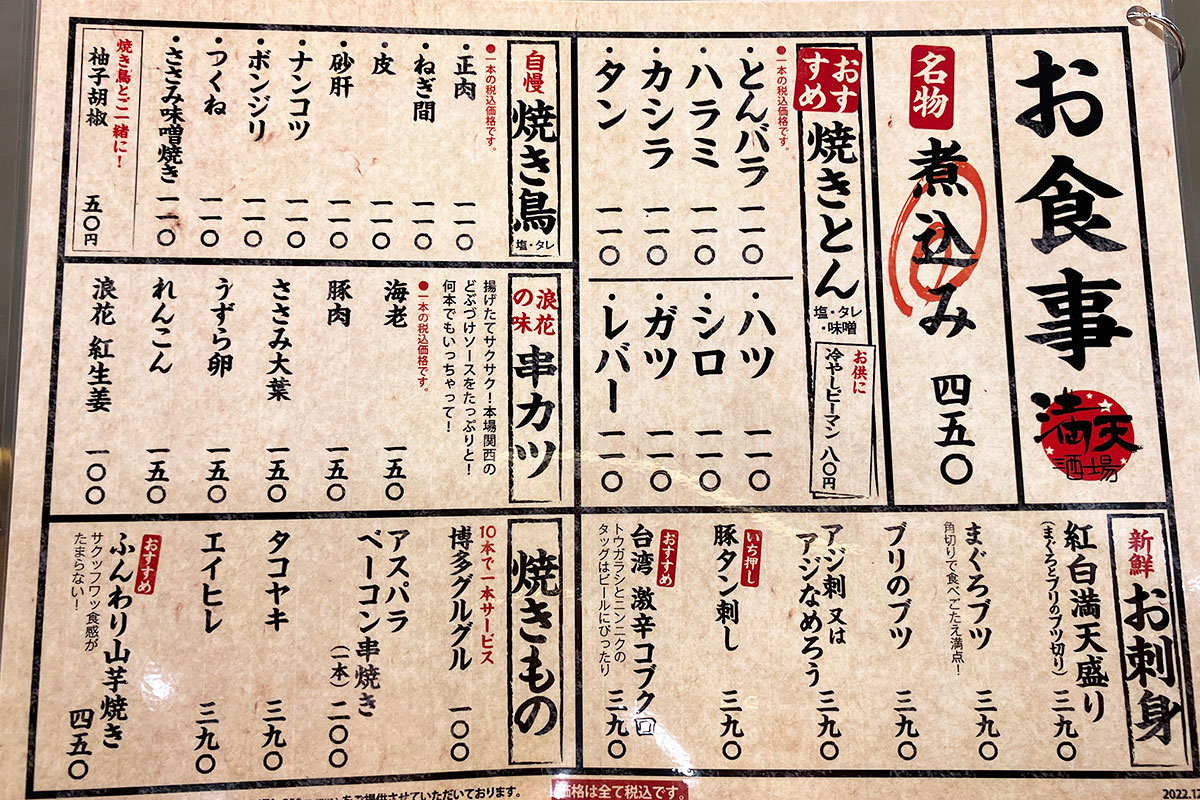 お食事
満天
酒場
名物
煮込み 四五〇
おすすめ
焼きとん
塩・タレ
・味噌
お供に
冷やしピーマン 八〇円
●一本の税込価格です。
・とんバラ 一一〇
・ハラミ 一一〇
・カシラ 一一〇
・タン 一一〇
・ハツ 一一〇
・シロ 一一〇
・ガツ 一一〇
・レバー 一一〇
自慢
焼き鳥
塩・タレ
●一本の税込価格です。
・正肉 一一〇
・ねぎ間 一一〇
・皮 一一〇
・砂肝 一一〇
・ナンコツ 一一〇
・ボンジリ 一一〇
・つくね 一一〇
・ささみ味噌焼き 一一〇
焼き鳥とご一緒に！
柚子胡椒 五〇円
浪花の味
串カツ
揚げたてサクサク！本場関西の
どぶづけソースをたっぷりと！
何本でもいっちゃって！
●一本の税込価格です。
海老 一五〇
豚肉 一五〇
ささみ大葉 一五〇
うずら卵 一五〇
れんこん 一五〇
浪花 紅生姜 一〇〇
新鮮
お刺身
紅白満天盛り 三九〇
（まぐろとブリのブツ切り）
まぐろブツ 三九〇
角切りで食べごたえ満点！
ブリのブツ 三九〇
アジ刺 又は
アジなめろう 三九〇
いち押し
豚タン刺し 三九〇
おすすめ
台湾 激辛コブクロ 三九〇
トウガラシとニンニクの
タッグはビールにぴったり
焼きもの
10本で一本サービス
博多グルグル 一〇〇
アスパラ
ベーコン串焼き
（一本） 二〇〇
タコヤキ 三九〇
エイヒレ 三九〇
おすすめ
ふんわり山芋焼き 四五〇
サクッフワッ食感が
たまらない！
をご提供させていただいております。
価格は全て税込です。
2022.12